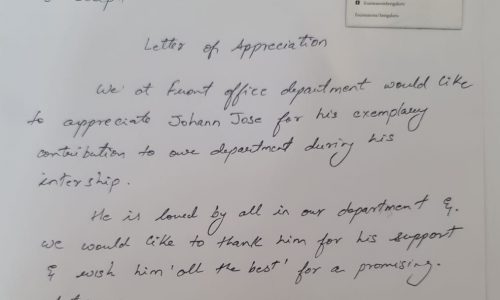 Letter of Appreciation
We at Front office department would like
to appreciate Johann Jose for his exemplary
contribution to our department during his
intership.
He is loved by all in our department &
we would like to thank him for his support
& wish him 'all the best' for a promising.